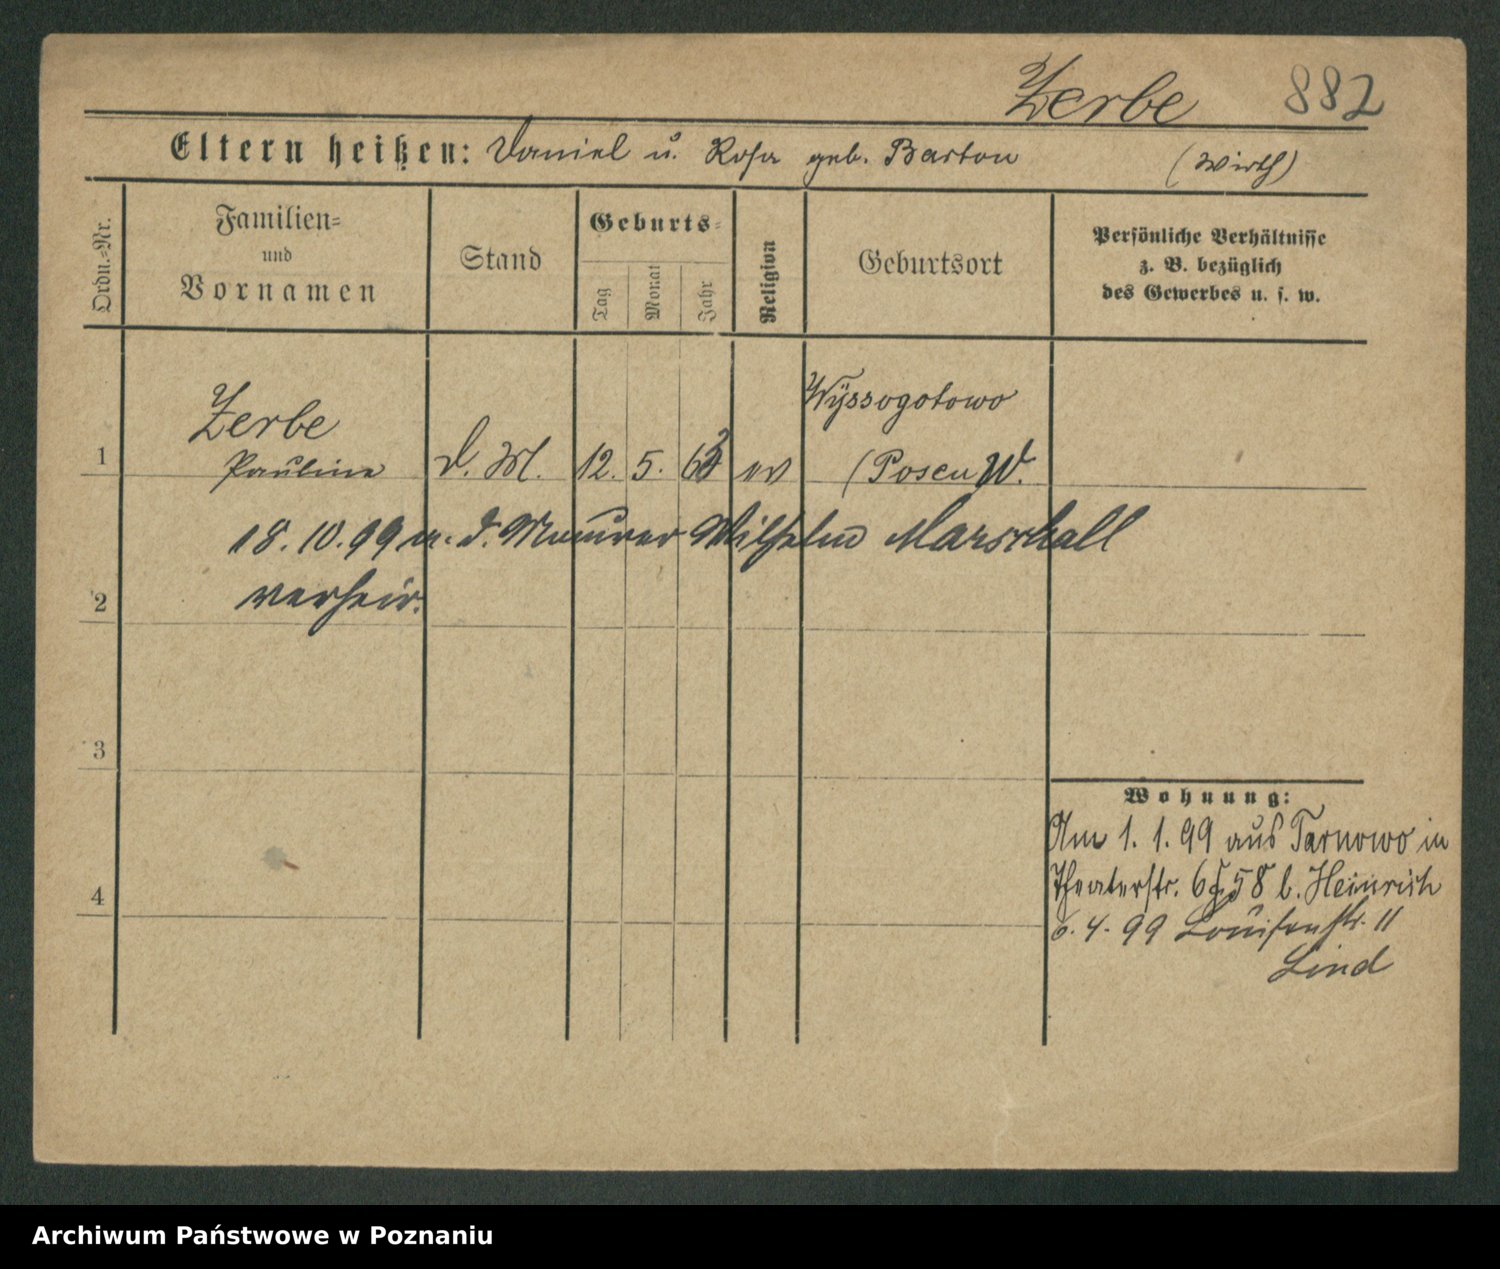 Zerbe 882
Eltern heißen: Daniel u. Rosa geb. Barton (Wirth)
Ordn.=Nr.
Familien=
und
Vornamen
Stand
Geburts=
Tag
Monat
Jahr
Religion
Geburtsort
Persönliche Verhältnisse
z. B. bezüglich
des Gewerbes u. s. w.
Zerbe Wyssogotowo
1 Pauline D. M. 12. 5. 63 ev (Posen W.
18. 10. 99 m. d. Maurer Wilhelm Marschall
2 verheir.
3
Wohnung:
Am 1. 1. 99 aus Tarnowo in
Theaterstr. 58 b. Heinrich
4
6. 4. 99 Louisenstr. 11
Lind
Archiwum Państwowe w Poznaniu